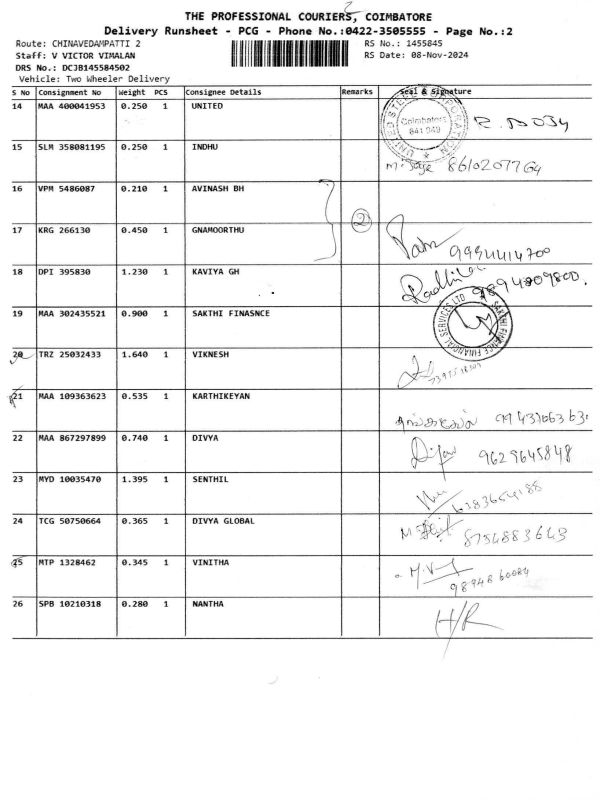 THE PROFESSIONAL COURIERS, COIMBATORE
Delivery Runsheet - PCG - Phone No.:0422-3505555 - Page No.:2
Route: CHINAVEDAMPATTI 2 RS No.: 1455845
Staff: V VICTOR VIMALAN RS Date: 08-Nov-2024
DRS No.: DCJB145584502
Vehicle: Two Wheeler Delivery
S No Consignment No Weight PCS Consignee Details Remarks Seal & Signature
14 MAA 400041953 0.250 1 UNITED
UNITED STEEL CORPORATION Coimbatore 641 049
15 SLM 358081195 0.250 1 INDHU
8610207764
16 VPM 5486087 0.210 1 AVINASH BH
2
17 KRG 266130 0.450 1 GNAMOORTHU
9994414700
18 DPI 395830 1.230 1 KAVIYA GH
9894209800.
19 MAA 302435521 0.900 1 SAKTHI FINASNCE
SAKTHI FINANCE FINANCIAL SERVICES LTD
20 TRZ 25032433 1.640 1 VIKNESH
21 MAA 109363623 0.535 1 KARTHIKEYAN
தங்கவேல்
22 MAA 867297899 0.740 1 DIVYA
9629645848
23 MYD 10035470 1.395 1 SENTHIL
6383654188
24 TCG 50750664 0.365 1 DIVYA GLOBAL
8754883643
25 MTP 1328462 0.345 1 VINITHA
M.V
9894860084
26 SPB 10210318 0.280 1 NANTHA
H/R